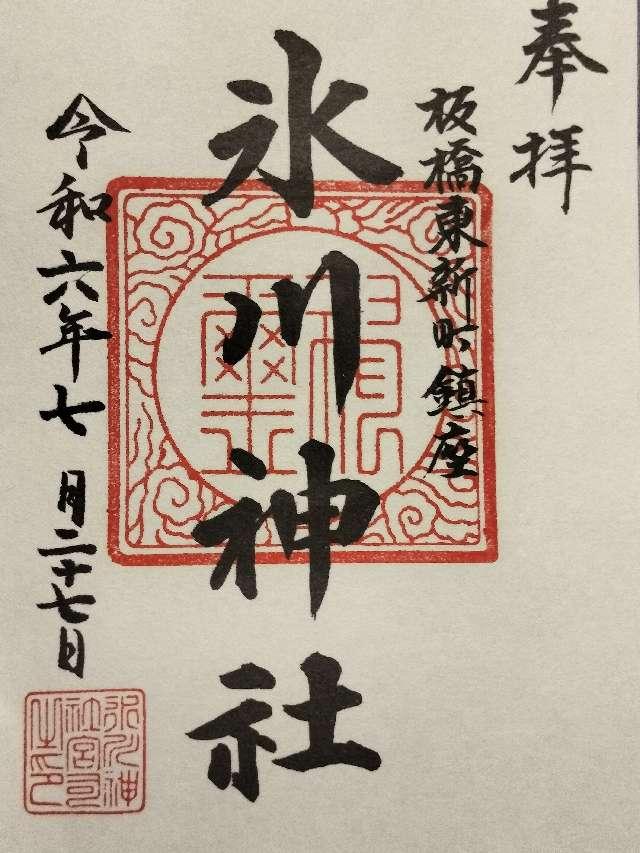 奉拝
板橋東新町鎮座
氷川神社
令和六年七月二十七日
氷川神社宮司之印